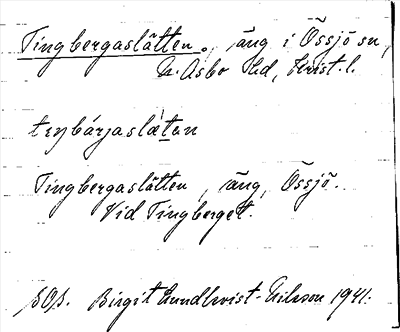 Tingbergaslätten, äng i Össjö sn,
N. Åsbo hd, Krist. l.
tɪŋbárjaslætan
Tingbergaslätten, äng, Össjö.
Vid Tingberget.
Birgit Lundkvist-Nilsson 1941.